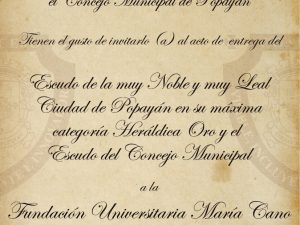 el Concejo Municipal de Popayán
Tienen el gusto de invitarlo (a) al acto de entrega del
Escudo de la muy Noble y muy Leal
Ciudad de Popayán en su máxima
categoría Heráldica Oro y el
Escudo del Concejo Municipal
a la
Fundación Universitaria María Cano